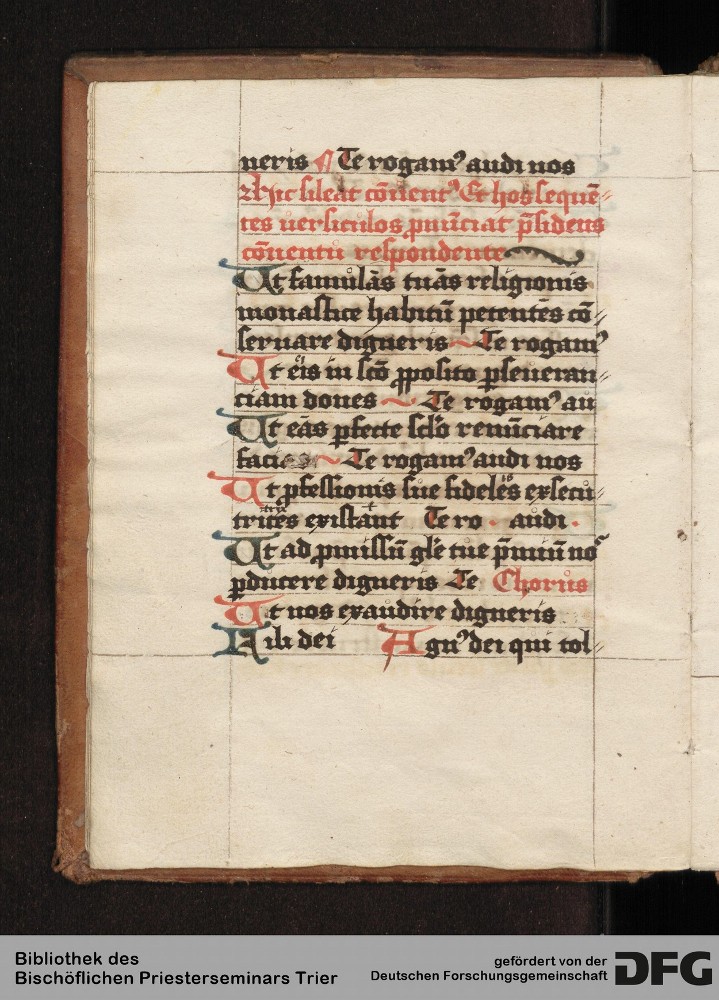 neris Te rogamꝰ audi nos
Hic sileāt cōuentꝰ Et hos sequē⸗
tes uersiculos ꝓnūciat p̄sidens
cōuentu respondente
Ut famulas tuas religionis
monastice habitū petentes cō⸗
seruare digneris ~ Te rogamꝰ
Ut eis in scō ꝓposito ꝑseueran⸗
ciam dones ~ Te rogamꝰ au
Ut eas ꝑfecte sclo renūciare
facias ~ Te rogamꝰ audi nos
Ut ꝓfessionis sue fideles exsecu⸗
trices existant Te ro · audi ·
Ut ad ꝓmissū gle tue p̄miū nos
ꝑducere digneris Te Chorus
Ut nos exaudire digneris
Fili dei Agnꝰ dei qui tol⸗
Bibliothek des
Bischöflichen Priesterseminars Trier
gefördert von der
Deutschen Forschungsgemeinschaft DFG